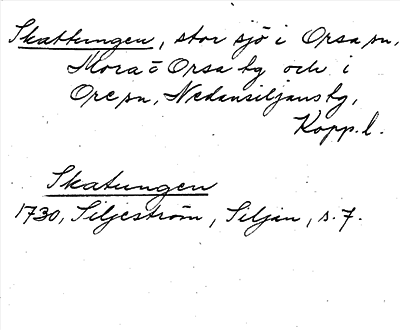 Skattungen, stor sjö i Orsa sn,
Mora o Orsa tg och i
Ore sn, Nedansiljans tg,
Kopp. l.
Skatungen
1730, Siljeström, Siljan, s. 7.